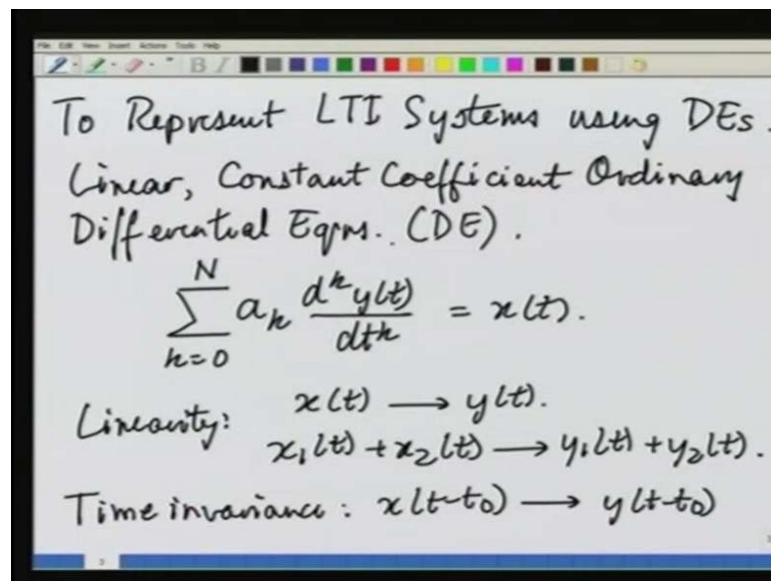 File Edit View Insert Actions Tools Help
B I
To Represent LTI Systems using DEs.
Linear, Constant Coefficient Ordinary
Differential Eqns.. (DE).
N
∑ aₖ dᵏy(t)/dtᵏ = x(t).
k=0
Linearity: x(t) → y(t).
x₁(t) + x₂(t) → y₁(t) + y₂(t).
Time invariance: x(t-t₀) → y(t-t₀)